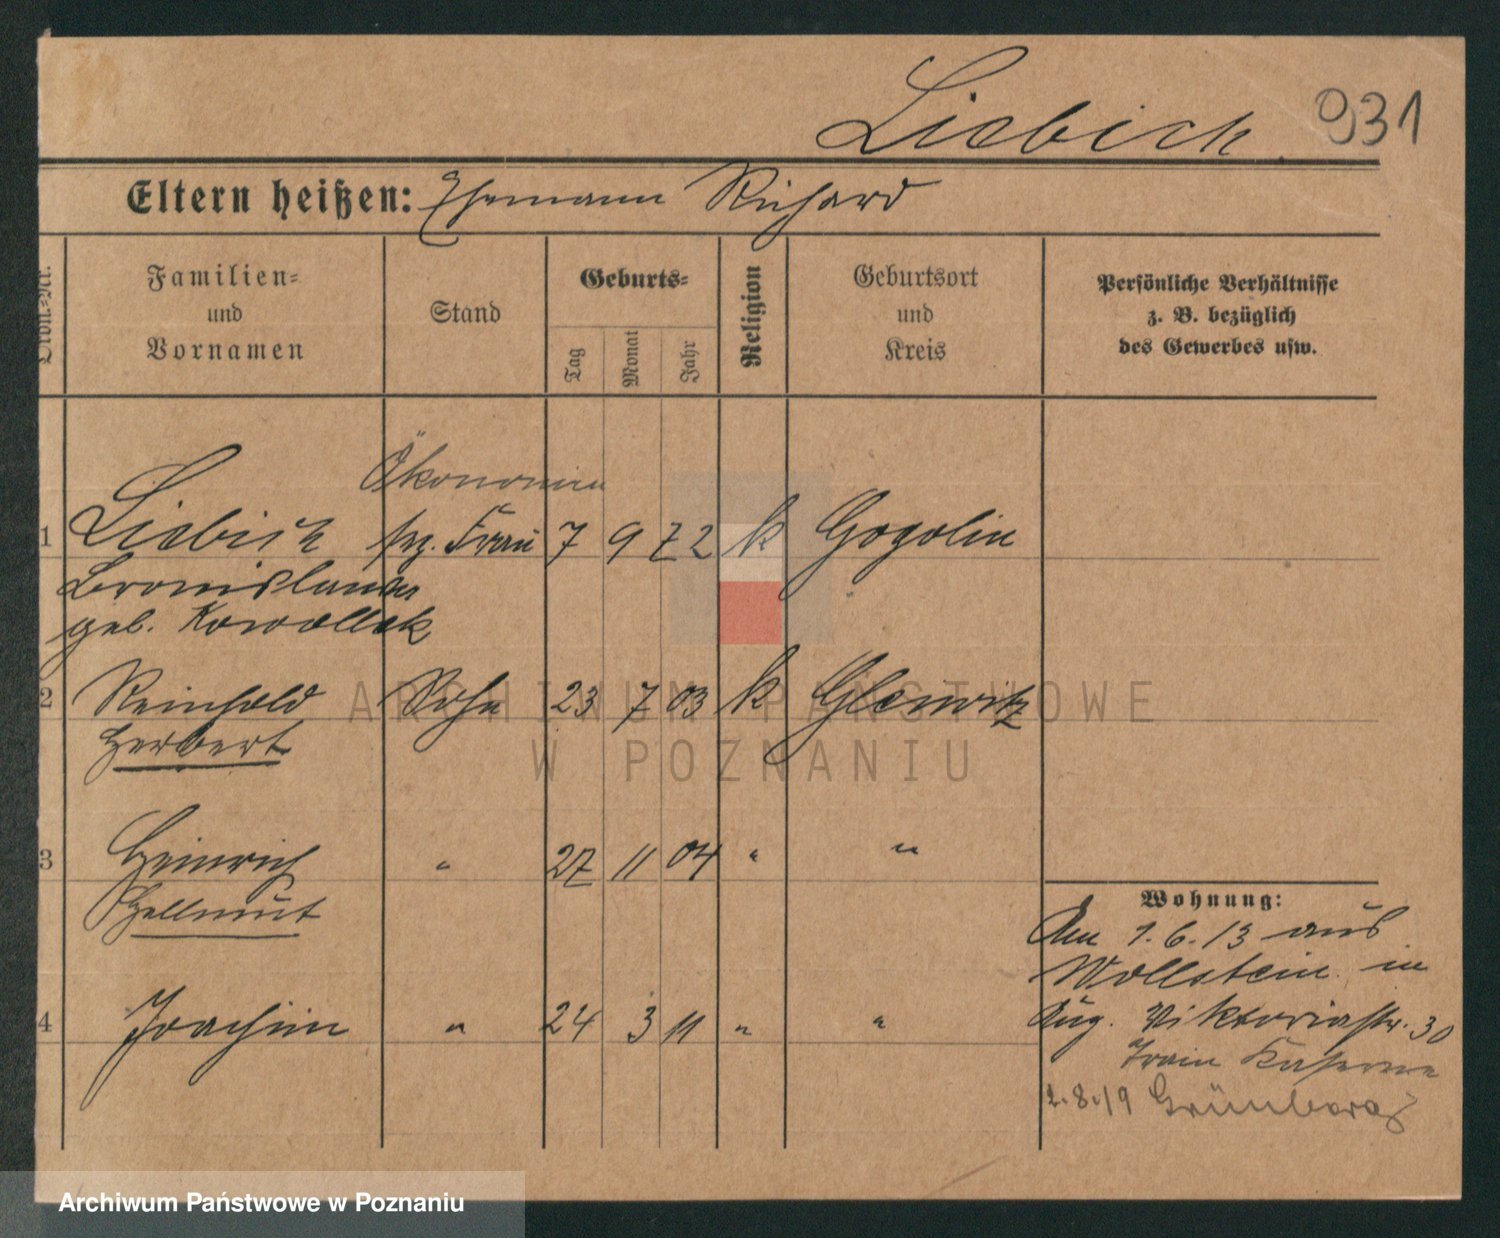 Liebich. 931
Eltern heißen: Ehemann Richard
Ordn.-Nr. Familien- und Vornamen Stand Geburts- Tag Monat Jahr Religion Geburtsort und Kreis Persönliche Verhältnisse z. B. bezüglich des Gewerbes usw.
Ökonomin
1 Liebich Frau 7 9 72 k Gogolin
Bronislawa
geb. Kowollek
2 Reinhold Sohn 23 7 03 k Gleiwitz
Herbert
3 Heinrich " 27 11 04 " "
Hellmut
4 Joachim " 24 3 11 " "
Wohnung:
Am 1.6.13 aus
Wollstein in
Aug. Viktoriastr. 30
Train Kaserne
2.8.19 Grünberg
ARCHIWUM PAŃSTWOWE
W POZNANIU
Archiwum Państwowe w Poznaniu